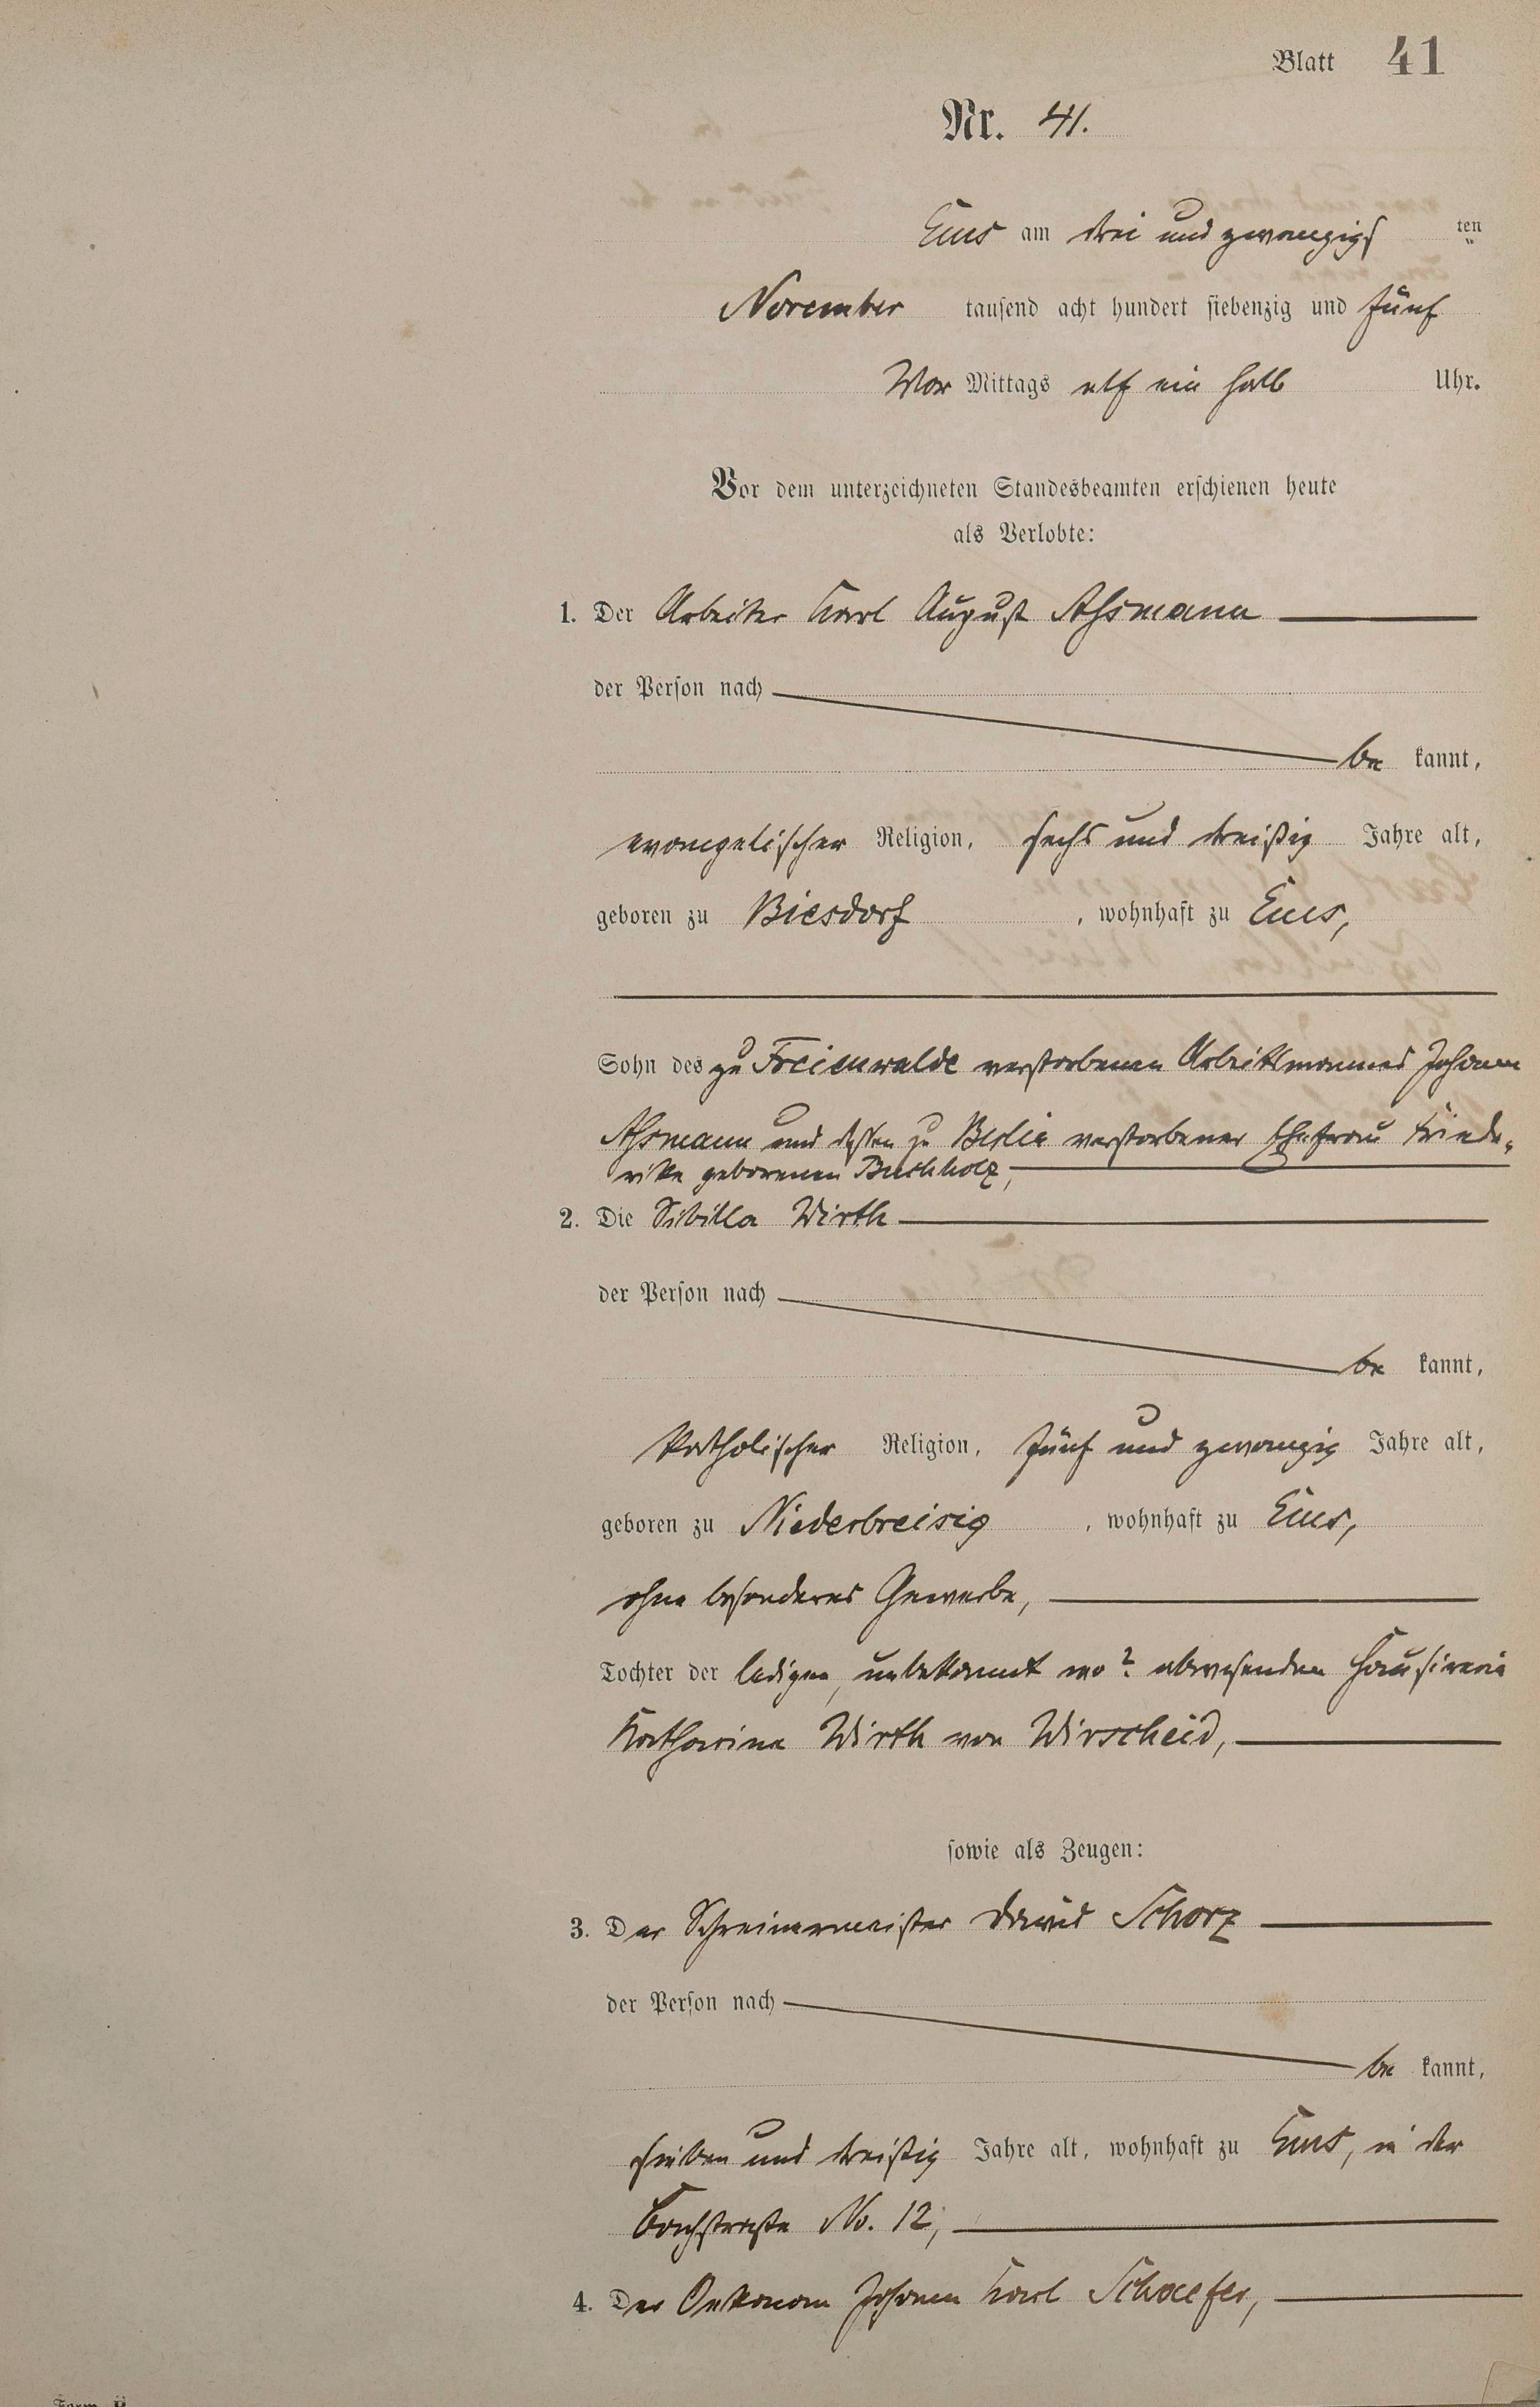 Blatt 41
Nr. 41.
Ems am drei und zwanzigs ten
November tausend acht hundert siebenzig und fünf
Vor Mittags elf ein halb Uhr.
Vor dem unterzeichneten Standesbeamten erschienen heute
als Verlobte:
1. Der Arbeiter Karl August Assmann
der Person nach
be kannt,
evangelischer Religion, sechs und dreißig Jahre alt,
geboren zu Biesdorf, wohnhaft zu Ems,
Sohn des zu Freienwalde verstorbenen Arbeitsmannes Johann
Assmann und dessen zu Berlin verstorbener Ehefrau Friede-
rike geborenen Buchholz,
2. Die Sibilla Wirth
der Person nach
be kannt,
katholischer Religion, fünf und zwanzig Jahre alt,
geboren zu Niederbreisig, wohnhaft zu Ems,
ohne besonderes Gewerbe,
Tochter der ledigen, unbekannt wo? abwesenden Hausirerin
Katharina Wirth von Wirscheid,
sowie als Zeugen:
3. Der Schreinermeister David Schorz
der Person nach
be kannt,
sieben und dreißig Jahre alt, wohnhaft zu Ems, in der
No. 12,
4. Der Oekonom Johann Karl Schaefer,
Form. B